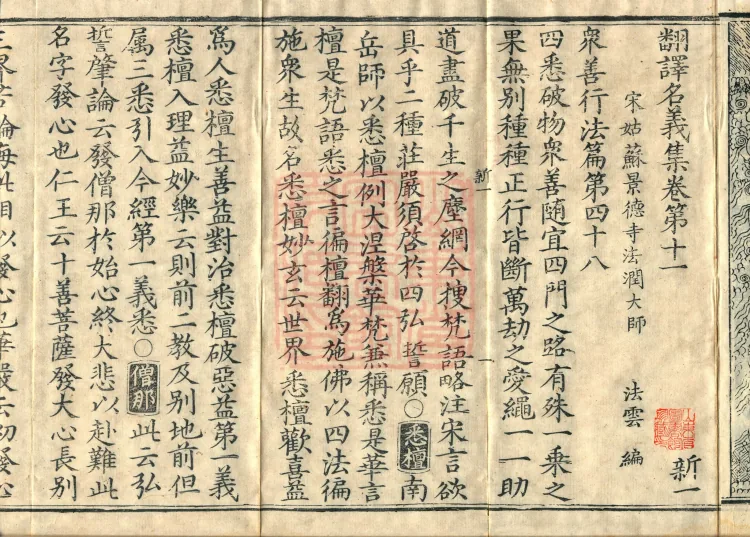 翻譯名義集卷第十一
新一
宋姑蘇景德寺法潤大師 法雲 編
衆善行法篇第四十八
四悉破物衆善随宜四門之路有殊一乘之
果無別種種正行皆斷萬劫之愛繩一一助
道盡破千生之塵網今搜梵語略注宋言欲
新一 一
具乎二種莊嚴須啓於四弘誓願○悉檀南
岳師以悉檀例大涅槃華梵兼稱悉是華言
檀是梵語悉之言徧檀翻爲施佛以四法徧
施衆生故名悉檀妙玄云世界悉檀歡喜益
爲人悉檀生善益對治悉檀破惡益第一義
悉檀入理益妙樂云則前二教及別地前但
属三悉引入今經第一義悉○僧那此云弘
誓肇論云發僧那於始心終大悲以赴難此
名字發心也仁王云十善菩薩發大心長別